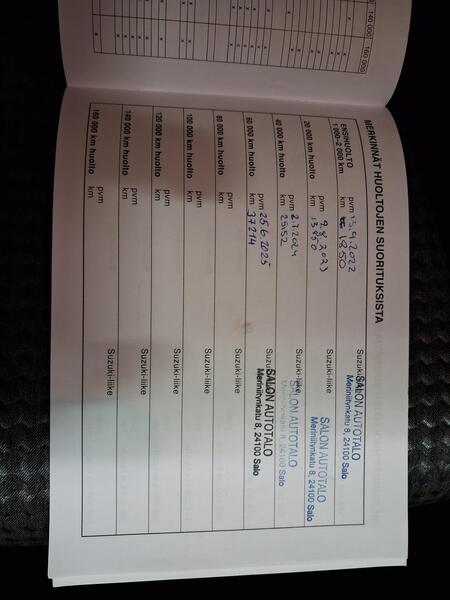 140 000
160 000
MERKINNÄT HUOLTOJEN SUORITUKSISTA
ENSIHUOLTO
1 000–2 000 km
pvm 13.9.2022
km 1850
Suzuki-liike
SALON AUTOTALO
Meriniitynkatu 8, 24100 Salo
20 000 km huolto
pvm 9.8.2023
km 13850
Suzuki-liike
SALON AUTOTALO
Meriniitynkatu 8, 24100 Salo
40 000 km huolto
pvm 2.7.2024
km 25152
Suzuki-liike
SALON AUTOTALO
Meriniitynkatu 8, 24100 Salo
60 000 km huolto
pvm 25.6.2025
km 37214
Suzuki-liike
SALON AUTOTALO
Meriniitynkatu 8, 24100 Salo
80 000 km huolto
pvm
km
Suzuki-liike
100 000 km huolto
pvm
km
Suzuki-liike
120 000 km huolto
pvm
km
Suzuki-liike
140 000 km huolto
pvm
km
Suzuki-liike
160 000 km huolto
pvm
km
Suzuki-liike